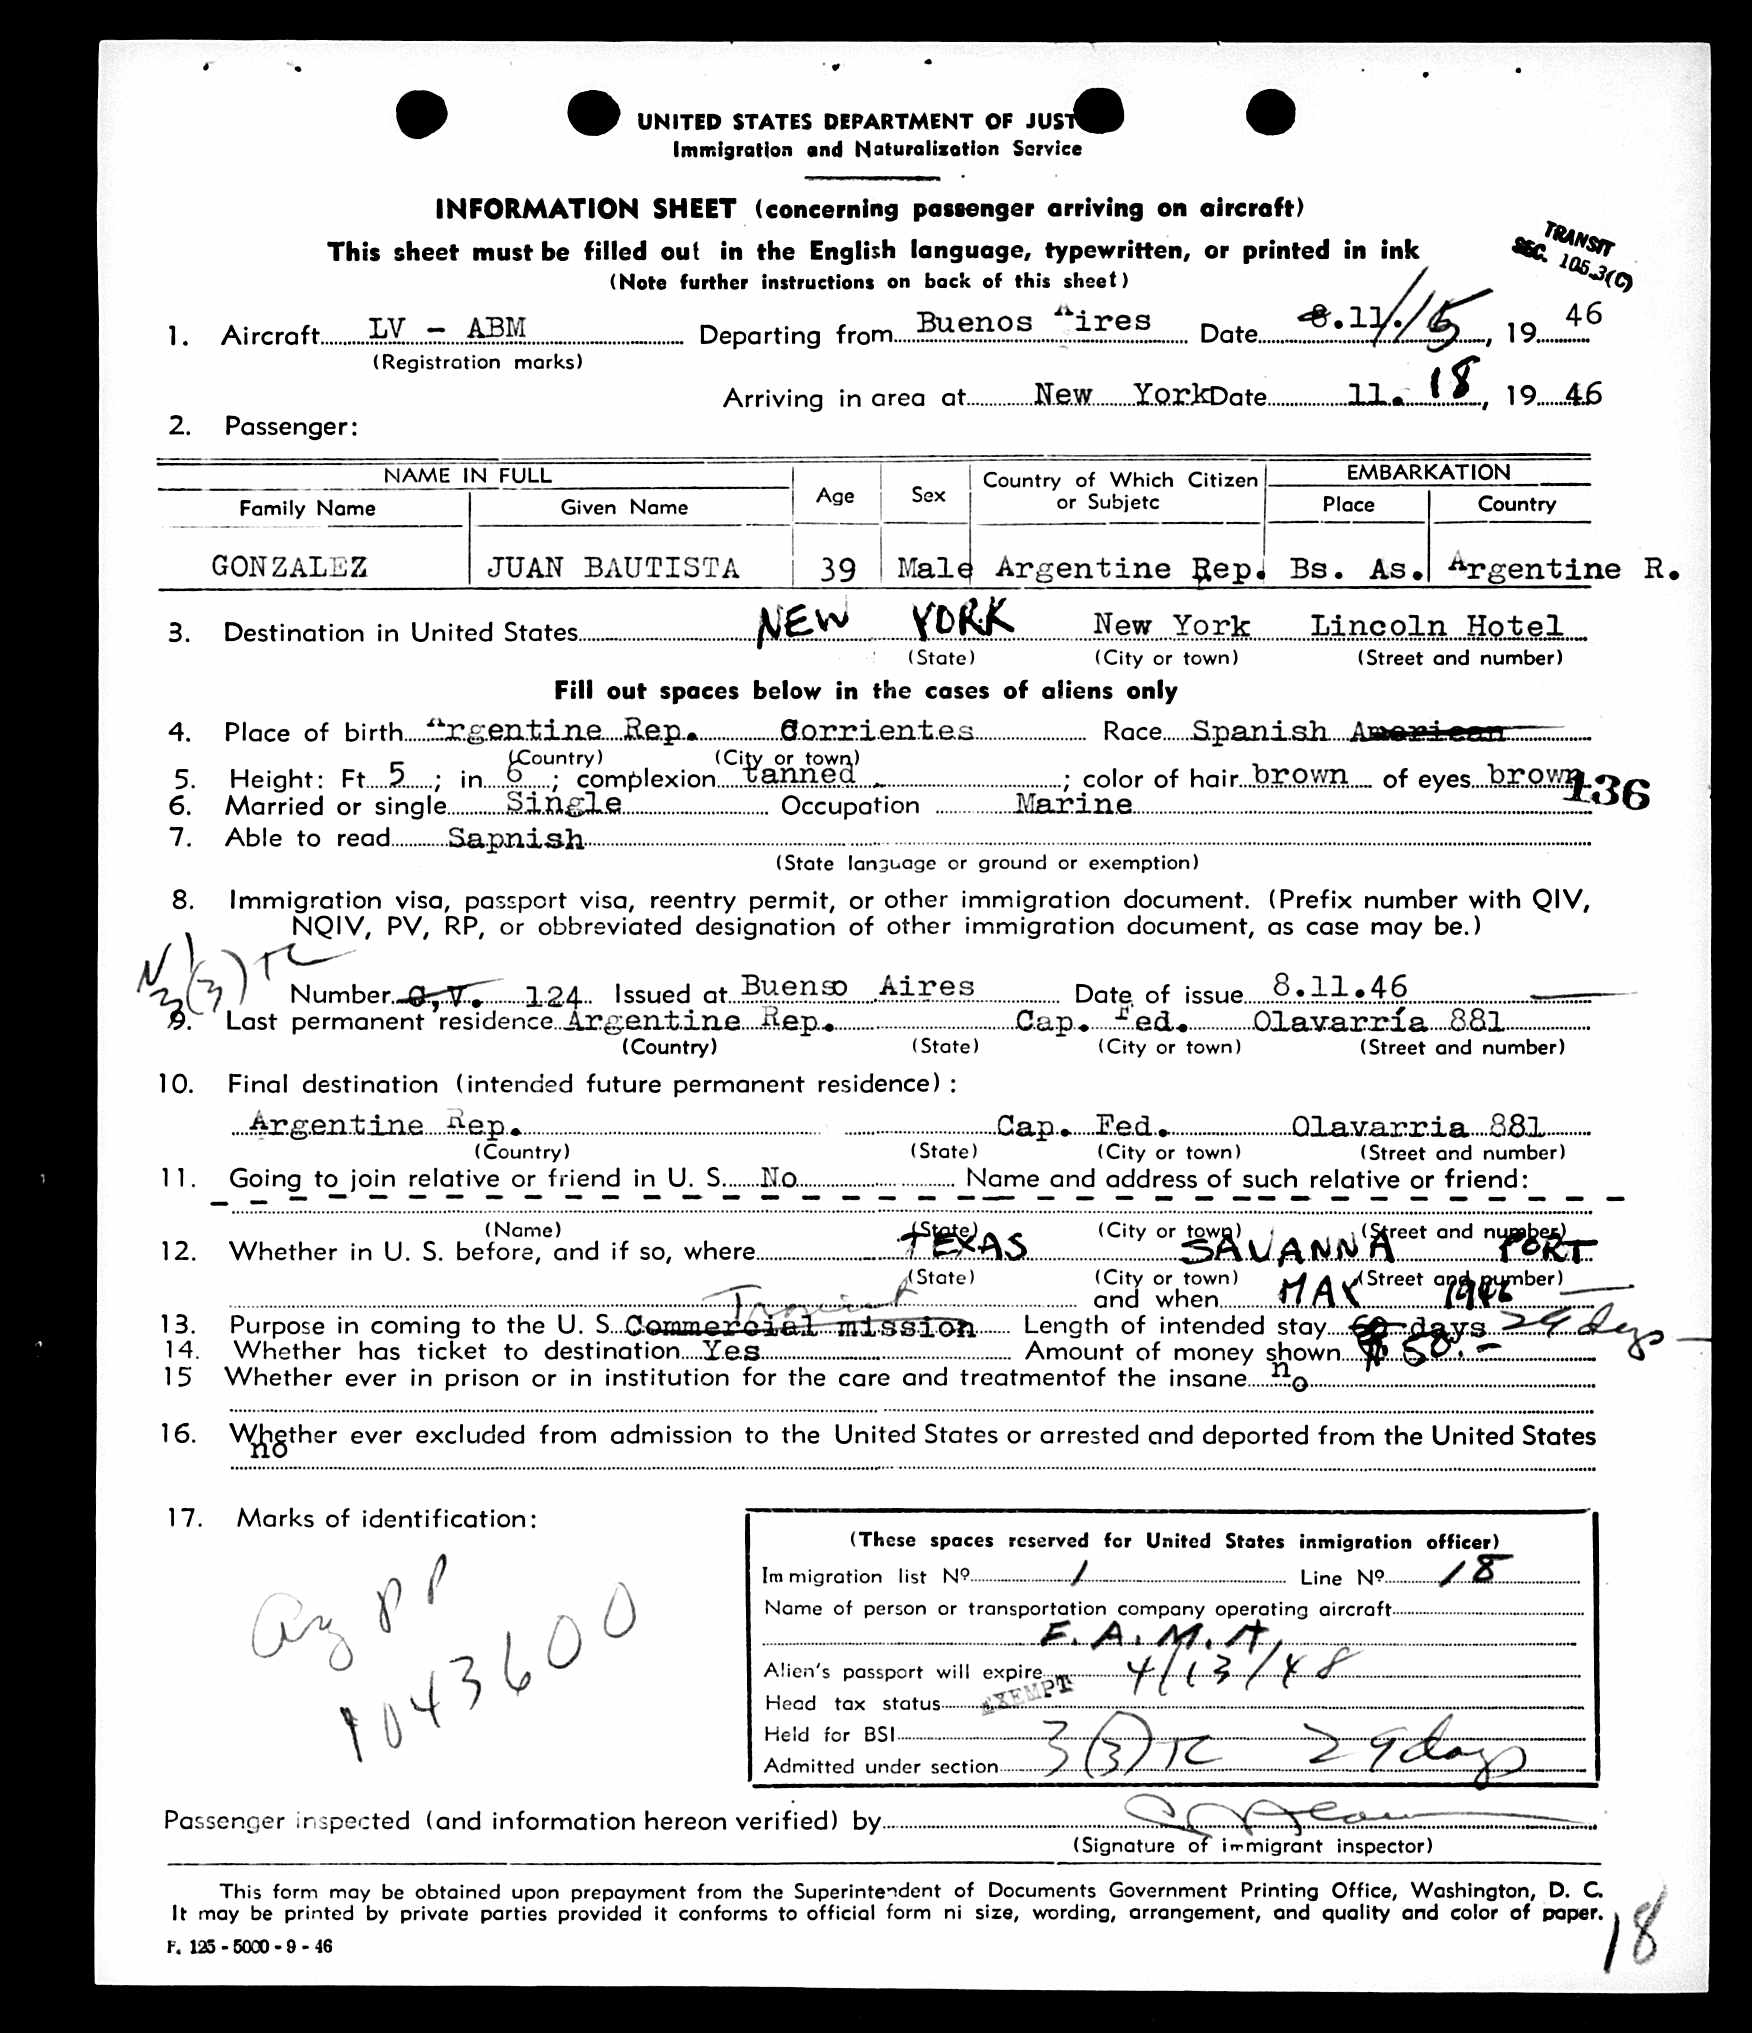 UNITED STATES DEPARTMENT OF JUST
Immigration and Naturalization Service
INFORMATION SHEET (concerning passenger arriving on aircraft)
This sheet must be filled out in the English language, typewritten, or printed in ink
(Note further instructions on back of this sheet)
TRANSIT
SEC. 105.3(C)
1. Aircraft LV - ABM Departing from Buenos Aires Date 8.11./15, 19 46
(Registration marks)
Arriving in area at New York Date 11. 18, 19 46
2. Passenger:
NAME IN FULL Age Sex Country of Which Citizen or Subjetc EMBARKATION
Family Name Given Name Place Country
GONZALEZ JUAN BAUTISTA 39 Male Argentine Rep. Bs. As. Argentine R.
3. Destination in United States NEW YORK New York Lincoln Hotel
(State) (City or town) (Street and number)
Fill out spaces below in the cases of aliens only
4. Place of birth Argentine Rep. Corrientes Race Spanish American
(Country) (City or town)
5. Height: Ft 5; in. 6; complexion tanned; color of hair brown of eyes brown
136
6. Married or single Single Occupation Marine
7. Able to read Sapnish
(State language or ground or exemption)
8. Immigration visa, passport visa, reentry permit, or other immigration document. (Prefix number with QIV,
NQIV, PV, RP, or obbreviated designation of other immigration document, as case may be.)
3(3) TC
Number C.V. 124 Issued at Buenso Aires Date of issue 8.11.46
9. Last permanent residence Argentine Rep. Cap. Fed. Olavarría 881
(Country) (State) (City or town) (Street and number)
10. Final destination (intended future permanent residence):
Argentine Rep. Cap. Fed. Olavarria 881
(Country) (State) (City or town) (Street and number)
11. Going to join relative or friend in U. S. No Name and address of such relative or friend:
(Name) (State) (City or town) (Street and number)
12. Whether in U. S. before, and if so, where TEXAS SAVANNA PORT
(State) (City or town) (Street and number)
and when MAY 1946
Transit
13. Purpose in coming to the U. S. Commercial mission Length of intended stay 60 days 29 days
14. Whether has ticket to destination Yes Amount of money shown $ 50.-
15 Whether ever in prison or in institution for the care and treatmentof the insane no
16. Whether ever excluded from admission to the United States or arrested and deported from the United States
no
17. Marks of identification:
(These spaces reserved for United States inmigration officer)
Immigration list Nº 1 Line Nº 18
Name of person or transportation company operating aircraft
F. A. M. A.
Alien's passport will expire 4/13/48
Head tax status EXEMPT
Held for BSI
Admitted under section 3(3) TC 29 days
Arg PP
1043600
Passenger inspected (and information hereon verified) by
(Signature of immigrant inspector)
This form may be obtained upon prepayment from the Superintendent of Documents Government Printing Office, Washington, D. C.
It may be printed by private parties provided it conforms to official form ni size, wording, arrangement, and quality and color of paper.
F. 125 - 5000 - 9 - 46
18